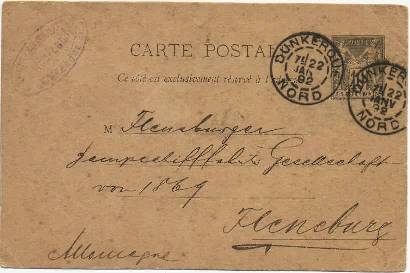 CARTE POSTALE
Ce côté est exclusivement réservé à l'
DUNKERQUE
7E 22
JANV
92
NORD
DUNKERQUE
7E 22
JANV
92
NORD
M Flensburger
Dampfschifffahrts Gesellschaft
von 1869
Flensburg
Allemagne